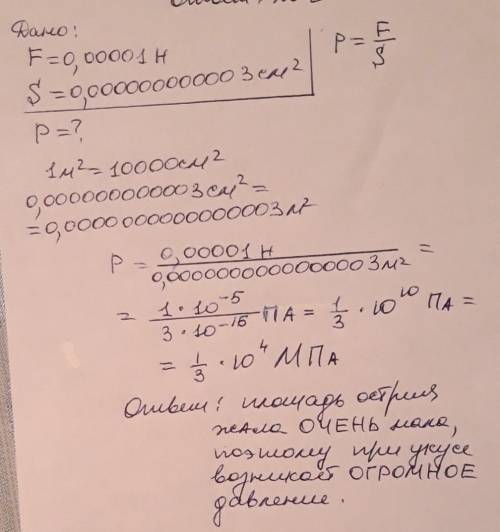 Дано:
F=0,00001 Н
P=F/S
S=0,000000000003 см²
P=?
1м²=10000см²
0,000000000003 см²=
=0,0000000000000003 м²
P=0,00001 Н/0,0000000000000003 м²=
=1·10⁻⁵/3·10⁻¹⁵ ПА=1/3·10¹⁰ ПА=
=1/3·10⁴ МПА
Ответ: площадь острия
жала ОЧЕНЬ мала,
поэтому при укусе
возникает ОГРОМНОЕ
давление.